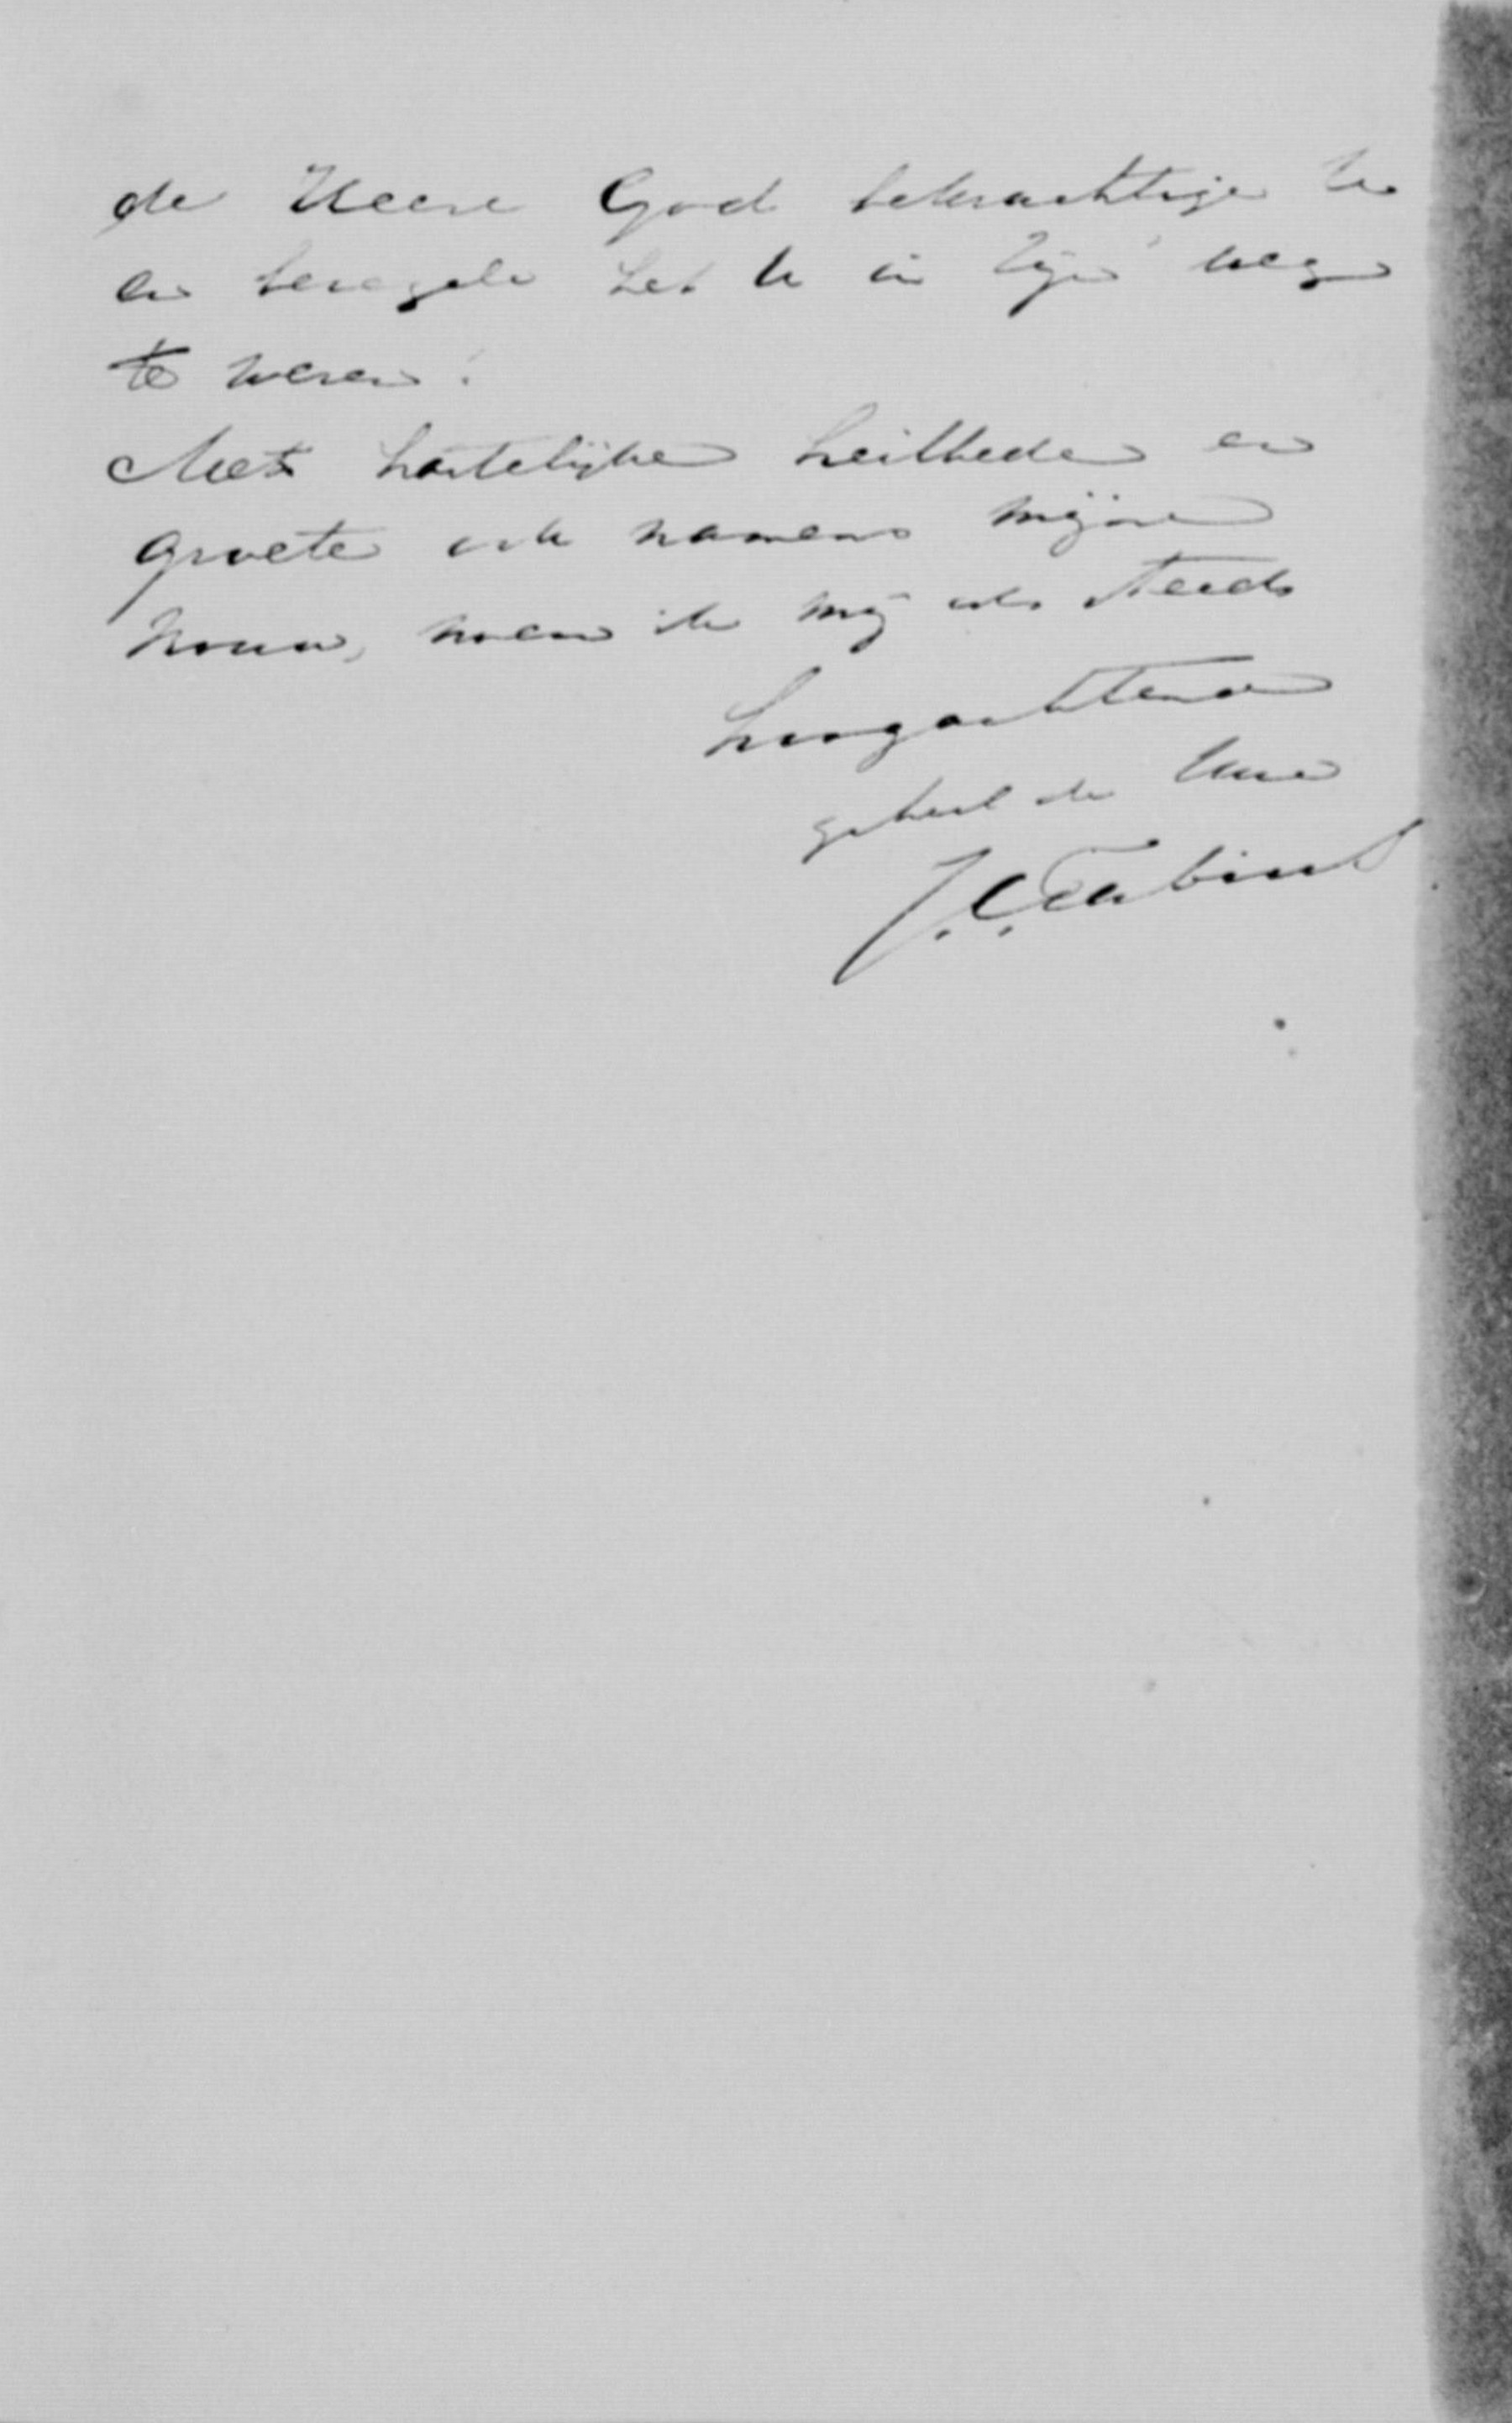 de Heere God bekrachtige U
en bezegele het U in Zijn weg
te wezen!
Met hartelijke heilbede en
groete ook namens mijne
vrouw, noem ik mij als steeds
hoogachtend
geheel de Uwe